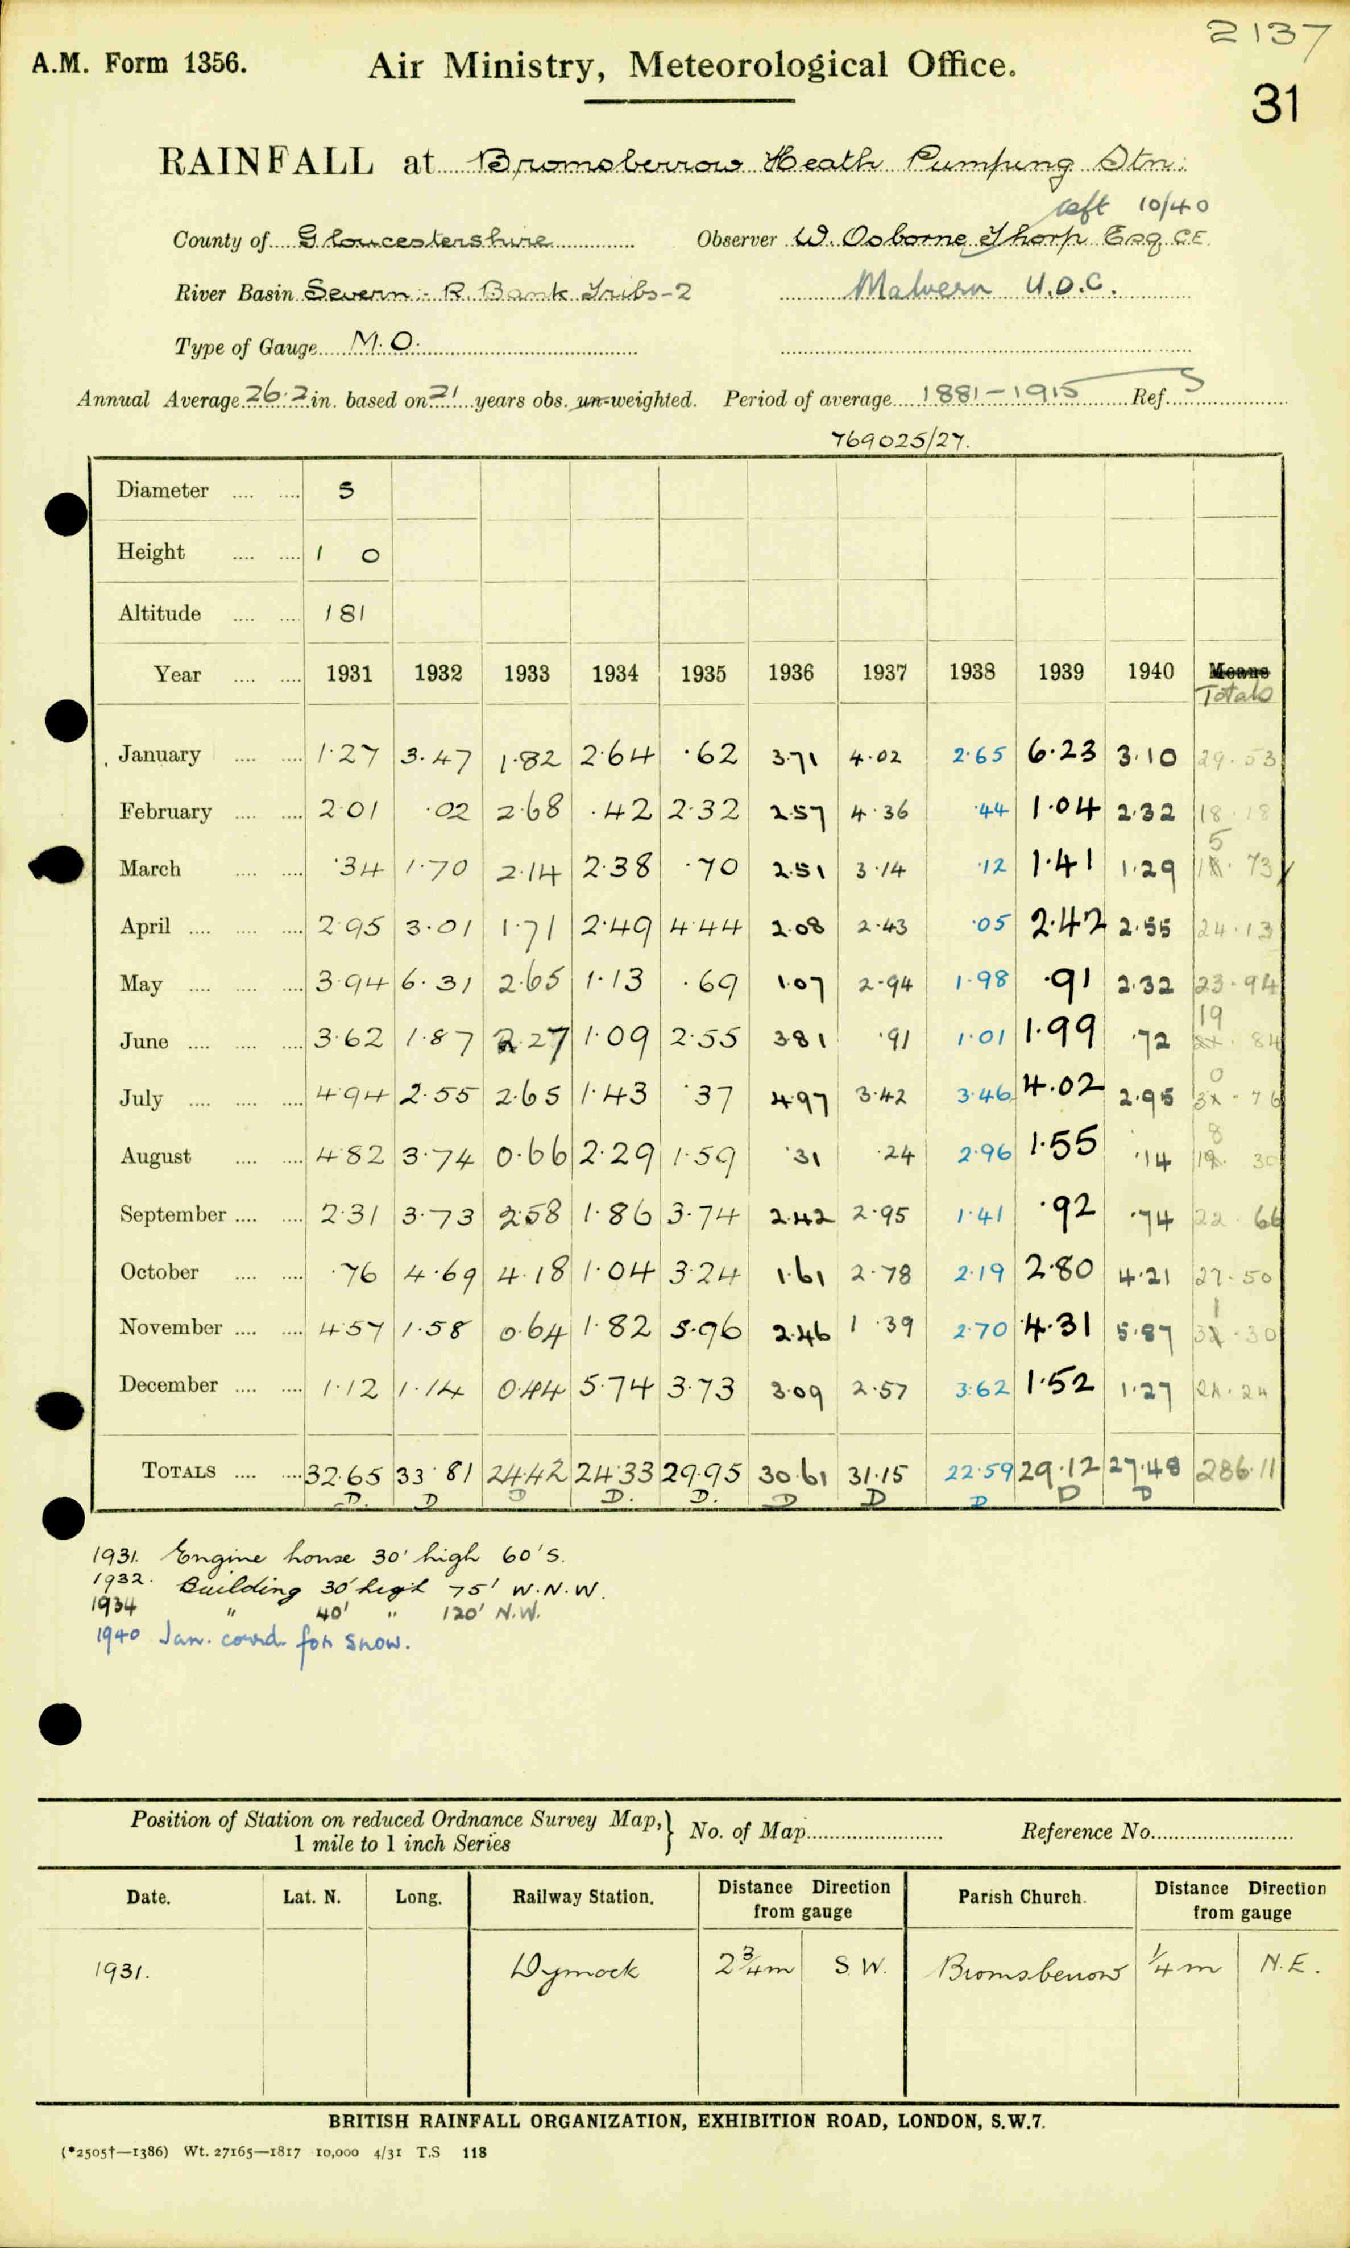 2137
A.M. Form 1356. Air Ministry, Meteorological Office.
31
RAINFALL at Bromsberrow Heath Pumping Stn:
left 10/40
County of Gloucestershire Observer W. Osborne Thorp Esq CE.
River Basin Severn:- R. Bank Tribs-2 Malvern U.D.C.
Type of Gauge M.O.
Annual Average 26.2 in. based on 21 years obs. un-weighted. Period of average 1881-1915 Ref. S
769025/27.
Diameter .... .... 5
Height .... .... 1 0
Altitude .... .... 181
Year .... .... 1931 1932 1933 1934 1935 1936 1937 1938 1939 1940 Means
Totals
January .... .... 1.27 3.47 1.82 2.64 .62 3.71 4.02 2.65 6.23 3.10 29.53
February .... .... 2.01 .02 2.68 .42 2.32 2.57 4.36 .44 1.04 2.32 18.18
March .... .... .34 1.70 2.14 2.38 .70 2.51 3.14 .12 1.41 1.29 15.73
April .... .... .... 2.95 3.01 1.71 2.49 4.44 2.08 2.43 .05 2.42 2.55 24.13
May .... .... .... 3.94 6.31 2.65 1.13 .69 1.07 2.94 1.98 .91 2.32 23.94
June .... .... .... 3.62 1.87 2.27 1.09 2.55 3.81 .91 1.01 1.99 .72 19.84
July .... .... .... 4.94 2.55 2.65 1.43 .37 4.97 3.42 3.46 4.02 2.95 30.76
August .... .... 4.82 3.74 0.66 2.29 1.59 .31 .24 2.96 1.55 .14 18.30
September .... .... 2.31 3.73 2.58 1.86 3.74 2.42 2.95 1.41 .92 .74 22.66
October .... .... .76 4.69 4.18 1.04 3.24 1.61 2.78 2.19 2.80 4.21 27.50
November .... .... 4.57 1.58 0.64 1.82 5.96 2.46 1.39 2.70 4.31 5.87 31.30
December .... .... 1.12 1.14 0.44 5.74 3.73 3.09 2.57 3.62 1.52 1.27 24.24
TOTALS .... .... 32.65 33.81 24.42 24.33 29.95 30.61 31.15 22.59 29.12 27.48 286.11
D. D D D. D. D D D D D
1931. Engine house 30' high 60' S.
1932. Building 30' high 75' W.N.W.
1934 " 40' " 120' N.W.
1940 Jan. corrd. for snow.
Position of Station on reduced Ordnance Survey Map, } No. of Map Reference No.
1 mile to 1 inch Series
Date. Lat. N. Long. Railway Station. Distance Direction from gauge Parish Church. Distance Direction from gauge
1931. Dymock 2 3/4 m S.W. Bromsberrow 1/4 m N.E.
BRITISH RAINFALL ORGANIZATION, EXHIBITION ROAD, LONDON, S.W.7.
(*2505†—1386) Wt. 27165—1817 10,000 4/31 T.S 118